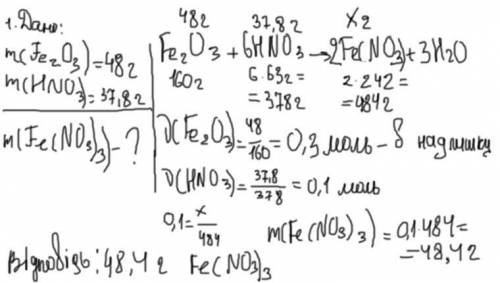 1. Дано:
m(Fe₂O₃)=48г
m(HNO₃)=37,8г
m(Fe(NO₃)₃)-?
48г 37,8г X г
Fe₂O₃ + 6HNO₃ → 2Fe(NO₃)+3H₂O
160г 6·63г= 2·242=
=378г =484г
ν(Fe₂O₃)=48/160=0,3 моль – в надлишку
ν(HNO₃)=37,8/378=0,1 моль
0,1=x/484 m(Fe(NO₃)₃)=0,1·484=
=48,4г
Відповідь: 48,4г Fe(NO₃)₃